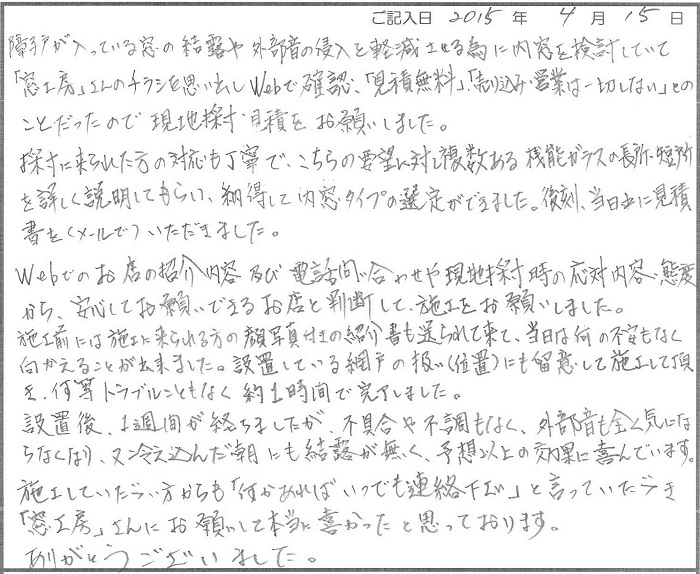 ご記入日 2015 年 4 月 15 日
障子が入っている窓の結露や外部音の侵入を軽減させる為に内窓を検討していて
「窓工房」さんのチラシを思い出しWebで確認、「見積無料」、「売り込み営業は一切しない」との
ことだったので現地採寸・見積をお願いしました。
採寸に来られた方の対応も丁寧で、こちらの要望に対し複数ある機能ガラスの長所・短所
を詳しく説明してもらい、納得して内窓タイプの選定ができました。後刻、当日中に見積
書を(メールで)いただきました。
Webでのお店の紹介内容及び電話問い合わせや現地採寸時の応対内容・態度
から、安心してお願いできるお店と判断して、施工をお願いしました。
施工前には施工に来られる方の顔写真付きの紹介書も送られて来て、当日は何の不安もなく
向かえることが出来ました。設置している網戸の扱い(位置)にも留意して施工して頂
き、何等トラブルこともなく約1時間で完了しました。
設置後、1週間が経ちましたが、不具合や不調もなく、外部音も全く気にな
らなくなり、又冷え込んだ朝にも結露が無く、予想以上の効果に喜んでいます。
施工していただいた方からも「何かあればいつでも連絡下さい」と言っていただき
「窓工房」さんにお願いして本当に喜かったと思っております。
ありがとうございました。